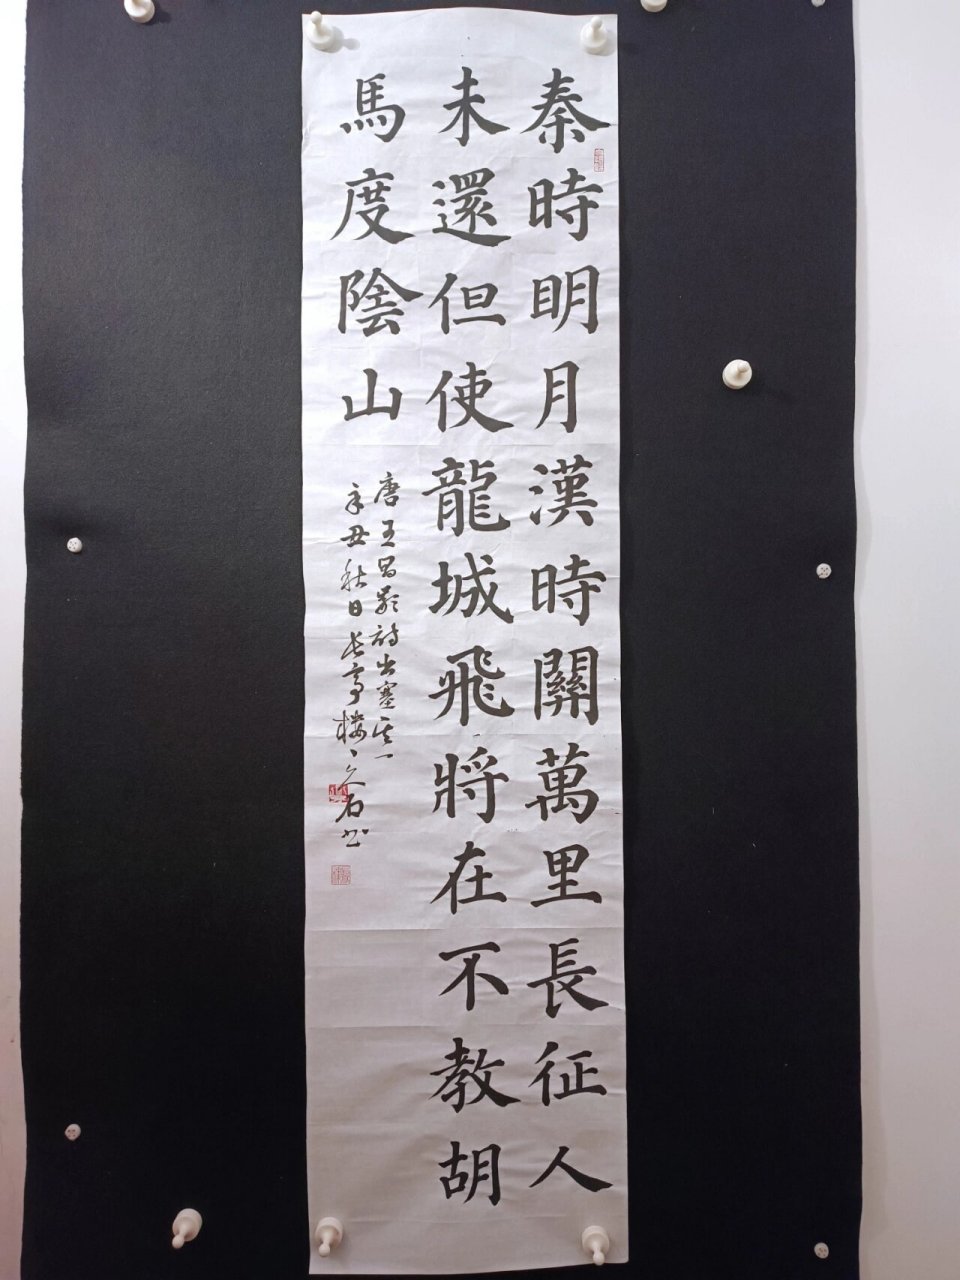 秦時明月漢時關萬里長征人
未還但使龍城飛將在不教胡
馬度陰山
唐王昌齡詩出塞其一
辛丑秋日長亭樓 久石书